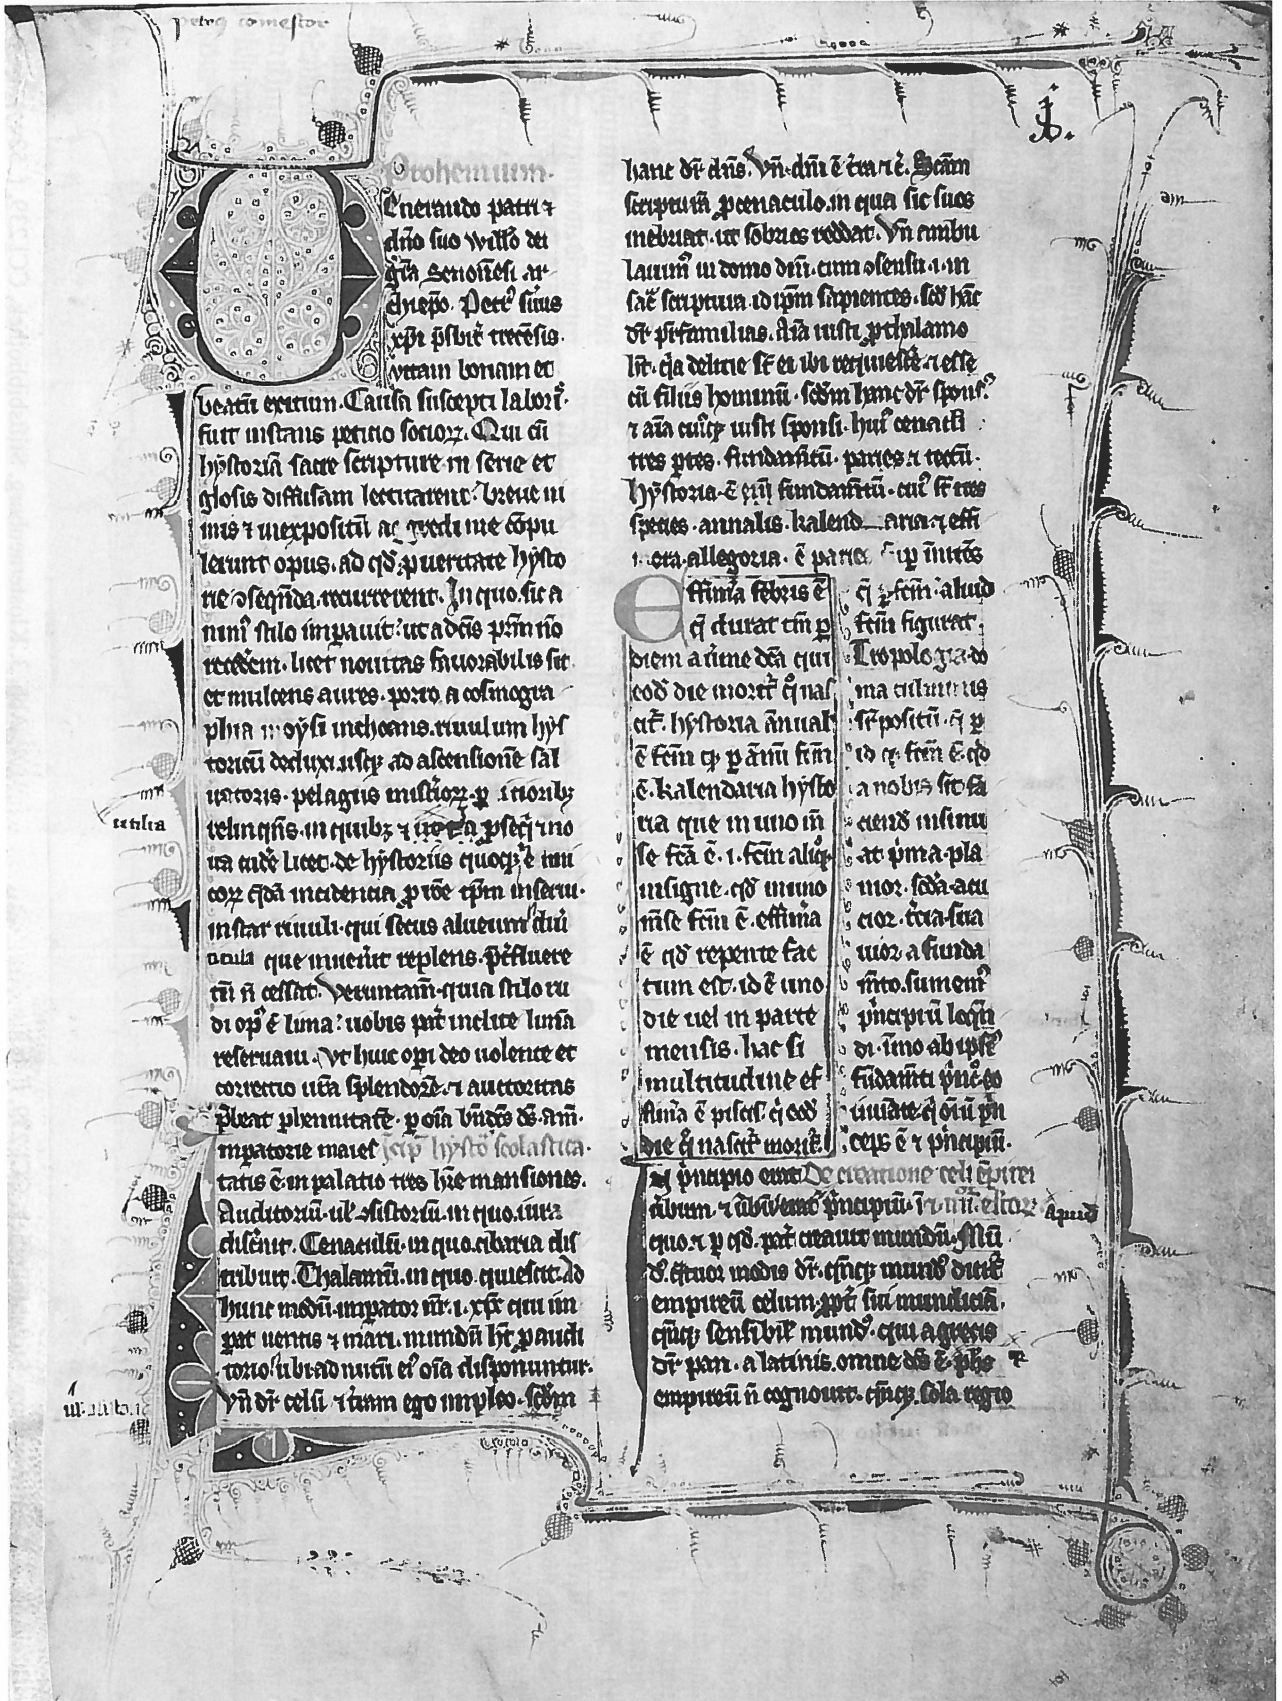 petrus comestor
Prohemium.
Venerando patri ⁊
dn̄o suo willo dei
gr̄a senonēsi ar
chiepō. Petrꝰ suus
xp̄i p̄sbit̄ trecēsis.
vitam bonam et
beatū exitum. Causa suscepti laborꝭ.
fuit instans petitio socioꝝ. Qui cū
hẏstoriā sacre scripture in serie et
glosis diffusam lectitarent. breuē ni
mis ⁊ inexpositū ag gredi me cōpu
lerunt opus. ad qd̄ p ueritate hẏsto
rie ꝯseqn̄da. recurrerent. In quo. sic a
nimꝰ stilo imꝑauit. ut a dc̄is pr̄m nō
recedēm. licet nouitas fauorabilis sit
et mulcens aures. porro a cosmogra
phia moẏsi inchoans. riuulum hẏs
toricū deduxi. usqꝫ ad ascensionē sal
uatoris. pelagus mist̄ioꝝ. pitioribꝫ
relinqn̄s. in quibꝫ ⁊ uetera ꝓseqi ⁊ no
ua cudē licet. de hẏstoriis quoqꝫ etni
coꝝ qdā incidencia ꝓ rōē tp̄m inserui.
instar riuuli. qui secus alueum diu
ticula que inuen̄it replens. p̄t̄fluere
tn̄ n̄ cessat. Veruntam̄. quia stilo ru
di opꝰ ē lima. uobis pat̄ inclite limā
reseruaui. Vt huic opi deo uolente et
correctio ur̄a splendorē. ⁊ auctoritas
p̄beat phennitatē. ꝑ oīa bn̄dc̄s ds̄. am̄.
mperatorie maies Incip̄ hẏstoꝭ scolastica.
tatis ē. in palatio tres hr̄e mansiones.
Auditoriū. ul ꝯsistoriū. in quo. iura
discernit. Cenaculū. in quo. cibaria dis
tribuit. Thalamū. in quo. quiescit. Ad
hunc modū. imꝑator nr̄. i. xp̄c qui im
ꝑat uentis ⁊ mari. mundū ht̄ ꝓ audi
torio. ubi. ad nutū eiꝰ oīa disponuntur.
Vn̄ dr̄ celū ⁊ t̄ram ego impleo. scdm̄
hanc dr̄ dn̄s. Vn̄. dn̄i ē t̄ra ⁊ c̄. Scām
scripturā ꝓ cenaculo. in qua sic suos
inebriat. ut sobrios reddat. Vn̄ ambu
lauimꝰ in domo dn̄i. cum ꝯsensu. i. in
sac̄ scriptura. id ip̄m sapientes. scdm̄ hāc
dr̄ pr̄familias. Aīa iusti ꝓ thalamo
ht̄. qa delicie st̄ ei ibi requiescē. ⁊ esse
cū filiis hominū. scdm̄ hanc dr̄ sponsꝰ.
⁊ aīa cuiqꝫ iusti sponsi. huiꝰ cenacli
tres ꝑtes. fundam̄tū. paries ⁊ tectū.
Hẏstoria. ē eiꝰ fundam̄tū. cuiꝰ st̄ tres
species. annalis. kalend aria. ⁊ effi
mera. allegoria. ē paries suꝑ innitēs
Effimia febris ē
q durat tm̄ ꝑ
diem a ūme dc̄a qui
eod̄ die morit̄ qo nas
cit̄. hẏstoria annual
ē fc̄m qꝫ ꝑ ānū fc̄m
ē. Kalendaria hẏsto
ria que in uno m̄
se fc̄a ē. i. fc̄m aliqꝫ.
insigne. qd̄ in uno
m̄se fc̄m ē. effimia
ē qd̄ repente fac
tum est. id ē uno
die uel in parte
mensis. hac si
multitudine ef
fimia ē piscis. q̄ eod̄
die qo nascit̄ morit̄.
q ꝑ fc̄m. aliud
fc̄m figurat.
Tropologia. do
ma culminis
sr̄positū. q ꝑ
id qd̄. fc̄m ē. qd̄
a nobis sit fa
ciend̄ insinu
at. p̄ma. pla
nior. scda. acu
cior. t̄cia. sua
uior. a funda
m̄to. sumemꝰ
p̄ncipiū loqn̄
di. immo ab ipsꝰ
fūdam̄ti p̄nc̄. eo
iuuāte. q̄ oīm p̄n
ceps ē ⁊ p̄ncipiū.
In p̄ncipio erat De creatione celi ēpirei
u̇bum. ⁊ u̇bū erat p̄ncipiū. ⁊ iiii. elītoꝝ
apud
quo. ⁊ ꝑ qd̄. pat̄ creauit mundū. Mū
dꝰ. q̄tuor modis dr̄. qn̄qꝫ mundꝰ dicit̄
empireū celum. ꝓpt̄ sui mundiciā.
qn̄qꝫ sensibil mundꝰ. qui a grecis
dr̄ pan. a latinis. omne ds̄ ē. phs
empireū n̄ cognouit. qn̄qꝫ. sola regio